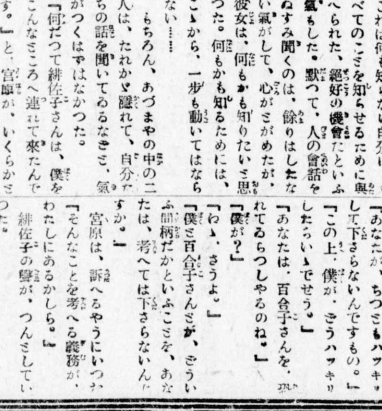 れは何も知らない自分に
べてのことを知らせるために與
へられた、絕好の機會だといふ
氣もした。默つて、人の會話を
ぬすみ聞くのは、餘りはしたな
い氣がして、心がとがめたが、
彼女は、何もかも知りたいと思
つた。何もかも知るためには、
こゝから、一步も動いてはなら
ない……
もちろん、あづまやの中の二
人は、たれかゞ隱れて、自分た
ちの話を聞いてゐるなどと、氣
がつくはずはなかつた。
『何だつて緋佐子さんは、僕を
こんなところへ連れて來たんで
す。』と、宮原が、いくらか
『あなたが、ちつともハッキリ
して下さらないんですもの。』
『この上、僕が、どうハッキリ
したらいゝでせう。』
『あなたは、百合子さんを、恐
れてゐらつしやるのね。』
『僕が？』
『わゝ、さうよ。』
『僕と百合子さんとが、どうい
ふ間柄だかといふことを、あな
たは、考へては下さらないんで
すか。』
宮原は、訴へるやうにいつた
『そんなことを考へる義務が、
わたしにあるかしら。』
緋佐子の聲が、つんとしてい
つた。